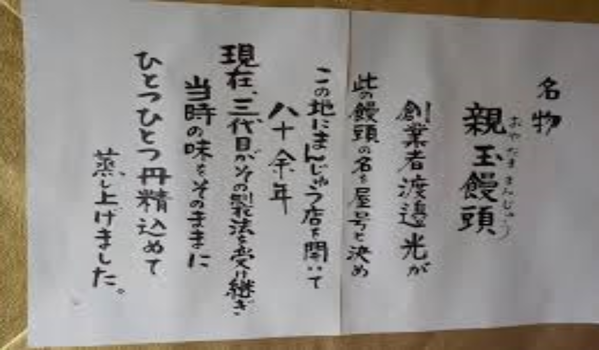 名物
親玉饅頭
おやだままんじゅう
創業者渡邉光が
此の饅頭の名を屋号と決め
この地にまんじゅう店を開いて
八十余年
現在、三代目がその製法を受け継ぎ
当時の味をそのままに
ひとつひとつ丹精込めて
蒸し上げました。